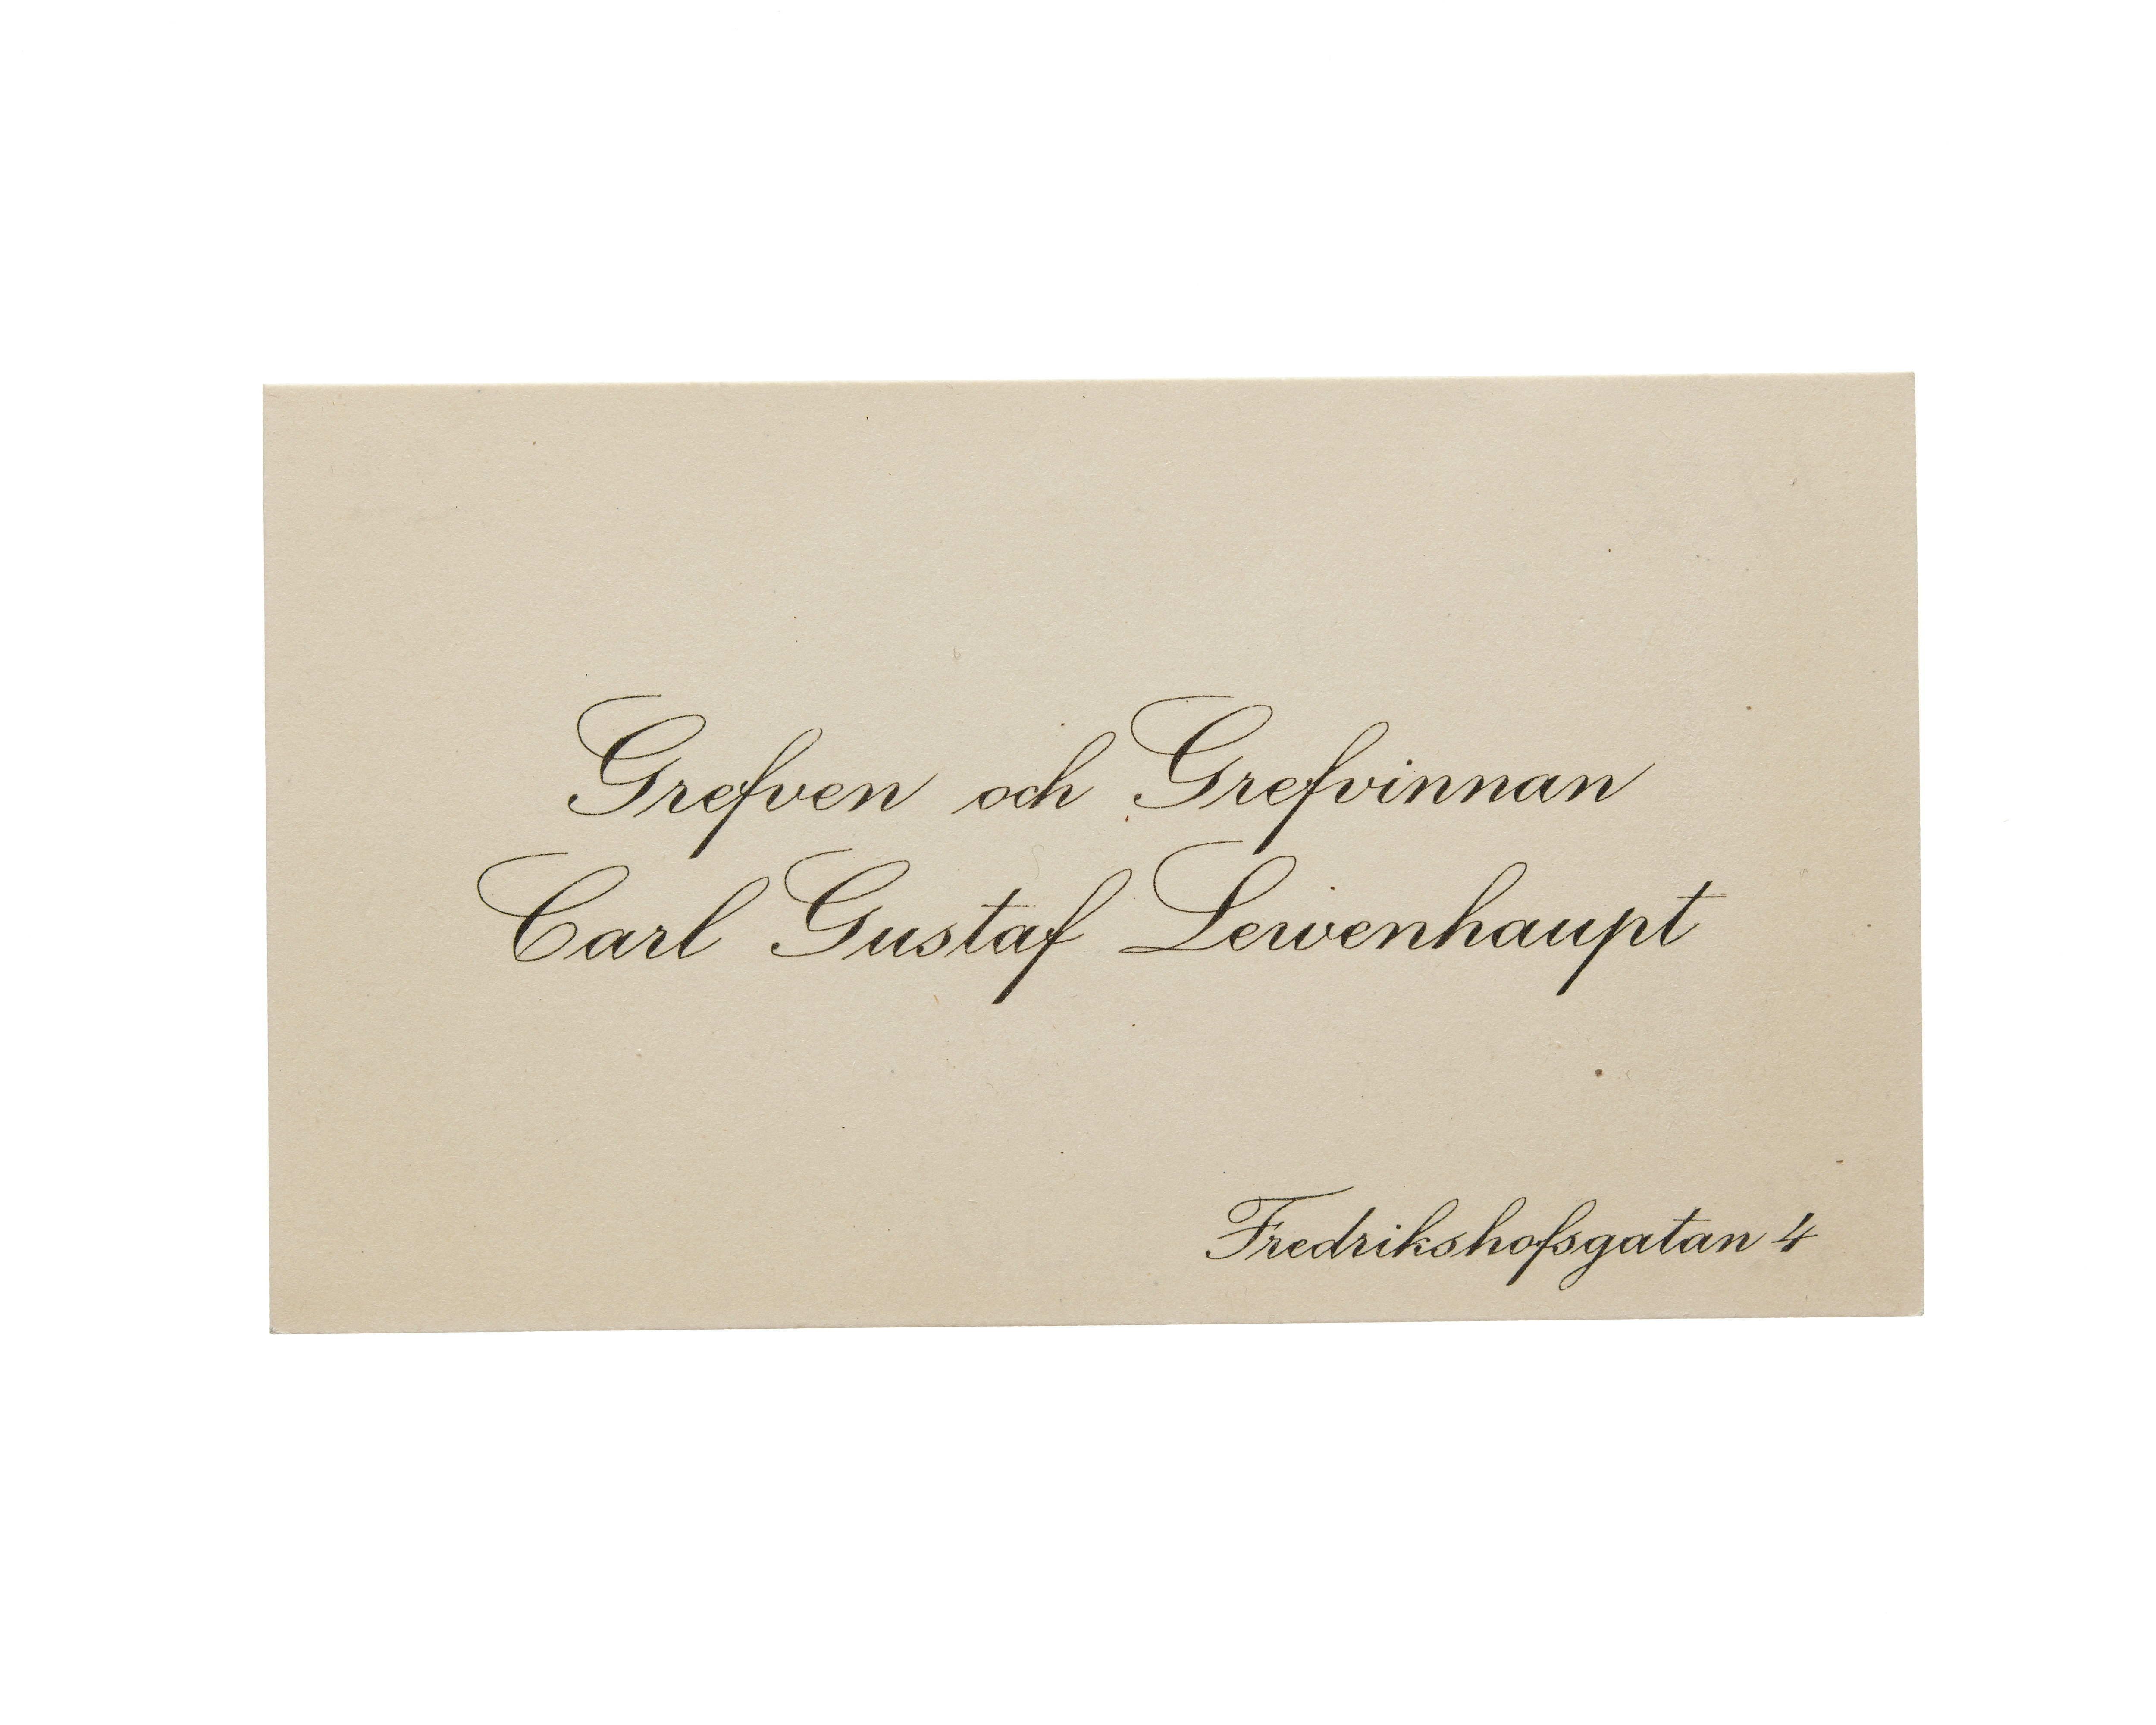 Grefven och Grefvinnan
Carl Gustaf Lewenhaupt
Fredrikshofsgatan 4